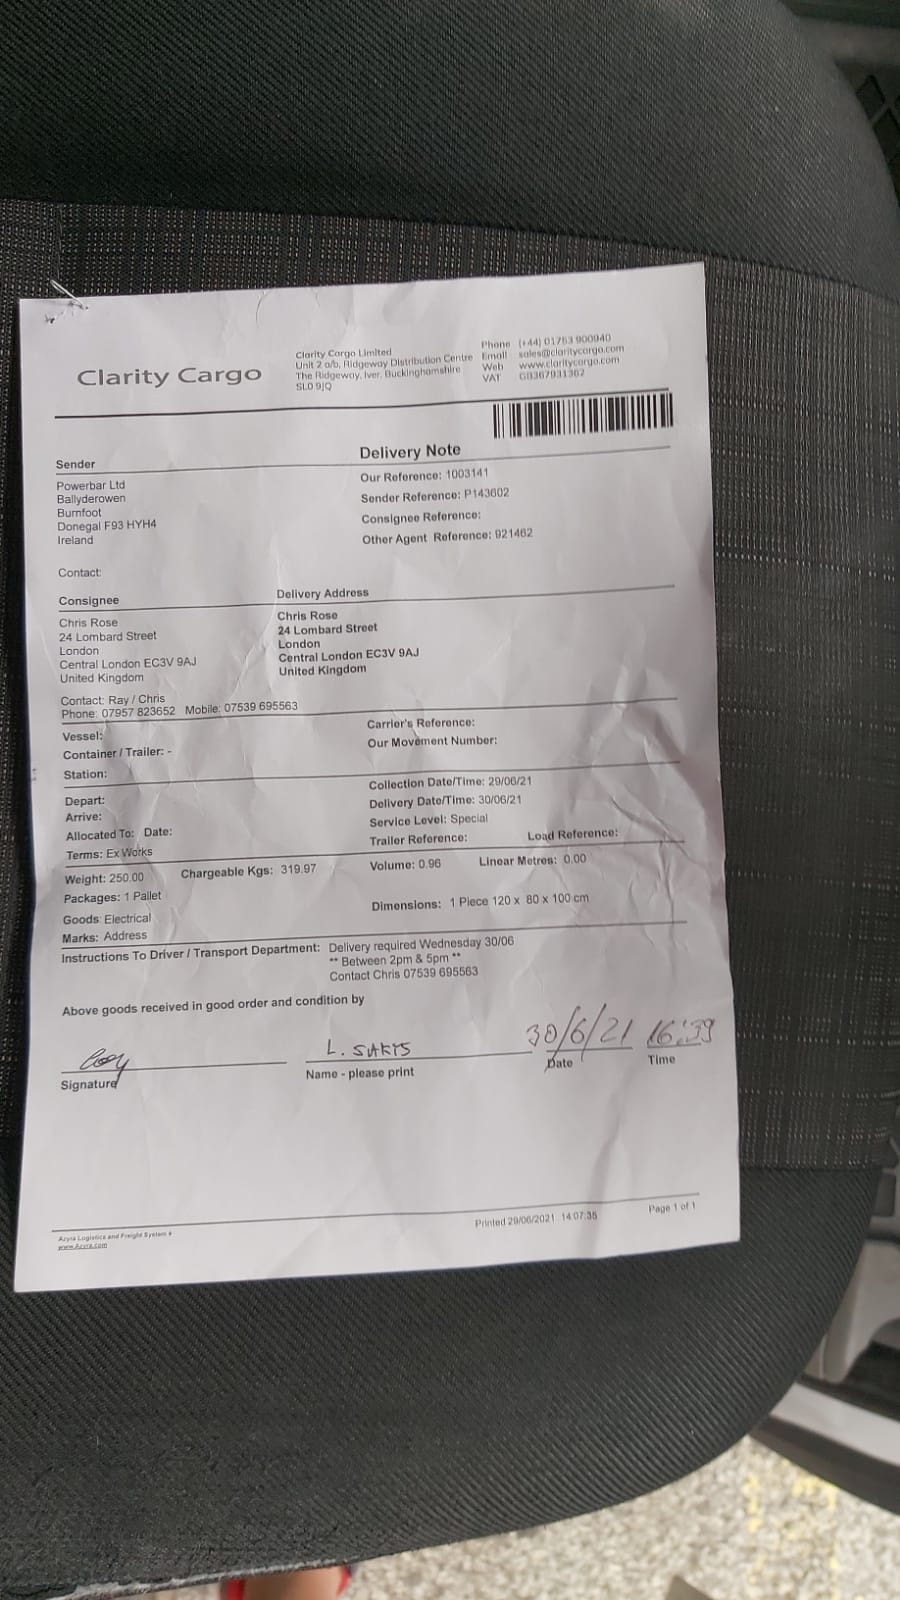 Clarity Cargo
Clarity Cargo Limited
Unit 2 a/b, Ridgeway Distribution Centre
The Ridgeway, Iver, Buckinghamshire
SL0 9JQ
Phone (+44) 01753 900940
Email sales@claritycargo.com
Web www.claritycargo.com
VAT GB367931362
Delivery Note
Sender
Powerbar Ltd
Ballyderowen
Burnfoot
Donegal F93 HYH4
Ireland
Contact:
Our Reference: 1003141
Sender Reference: P143602
Consignee Reference:
Other Agent Reference: 921462
Consignee
Chris Rose
24 Lombard Street
London
Central London EC3V 9AJ
United Kingdom
Delivery Address
Chris Rose
24 Lombard Street
London
Central London EC3V 9AJ
United Kingdom
Contact: Ray / Chris
Phone: 07957 823652 Mobile: 07539 695563
Vessel:
Container / Trailer: -
Station:
Carrier's Reference:
Our Movement Number:
Depart:
Arrive:
Allocated To: Date:
Terms: Ex Works
Collection Date/Time: 29/06/21
Delivery Date/Time: 30/06/21
Service Level: Special
Trailer Reference: Load Reference:
Weight: 250.00 Chargeable Kgs: 319.97 Volume: 0.96 Linear Metres: 0.00
Packages: 1 Pallet
Goods: Electrical Dimensions: 1 Piece 120 x 80 x 100 cm
Marks: Address
Instructions To Driver / Transport Department: Delivery required Wednesday 30/06
** Between 2pm & 5pm **
Contact Chris 07539 695563
Above goods received in good order and condition by
L. SAKYS 30/6/21 16:39
Signature Name - please print Date Time
Azyra Logistics and Freight System ®
www.Azyra.com
Printed 29/06/2021 14:07:35 Page 1 of 1